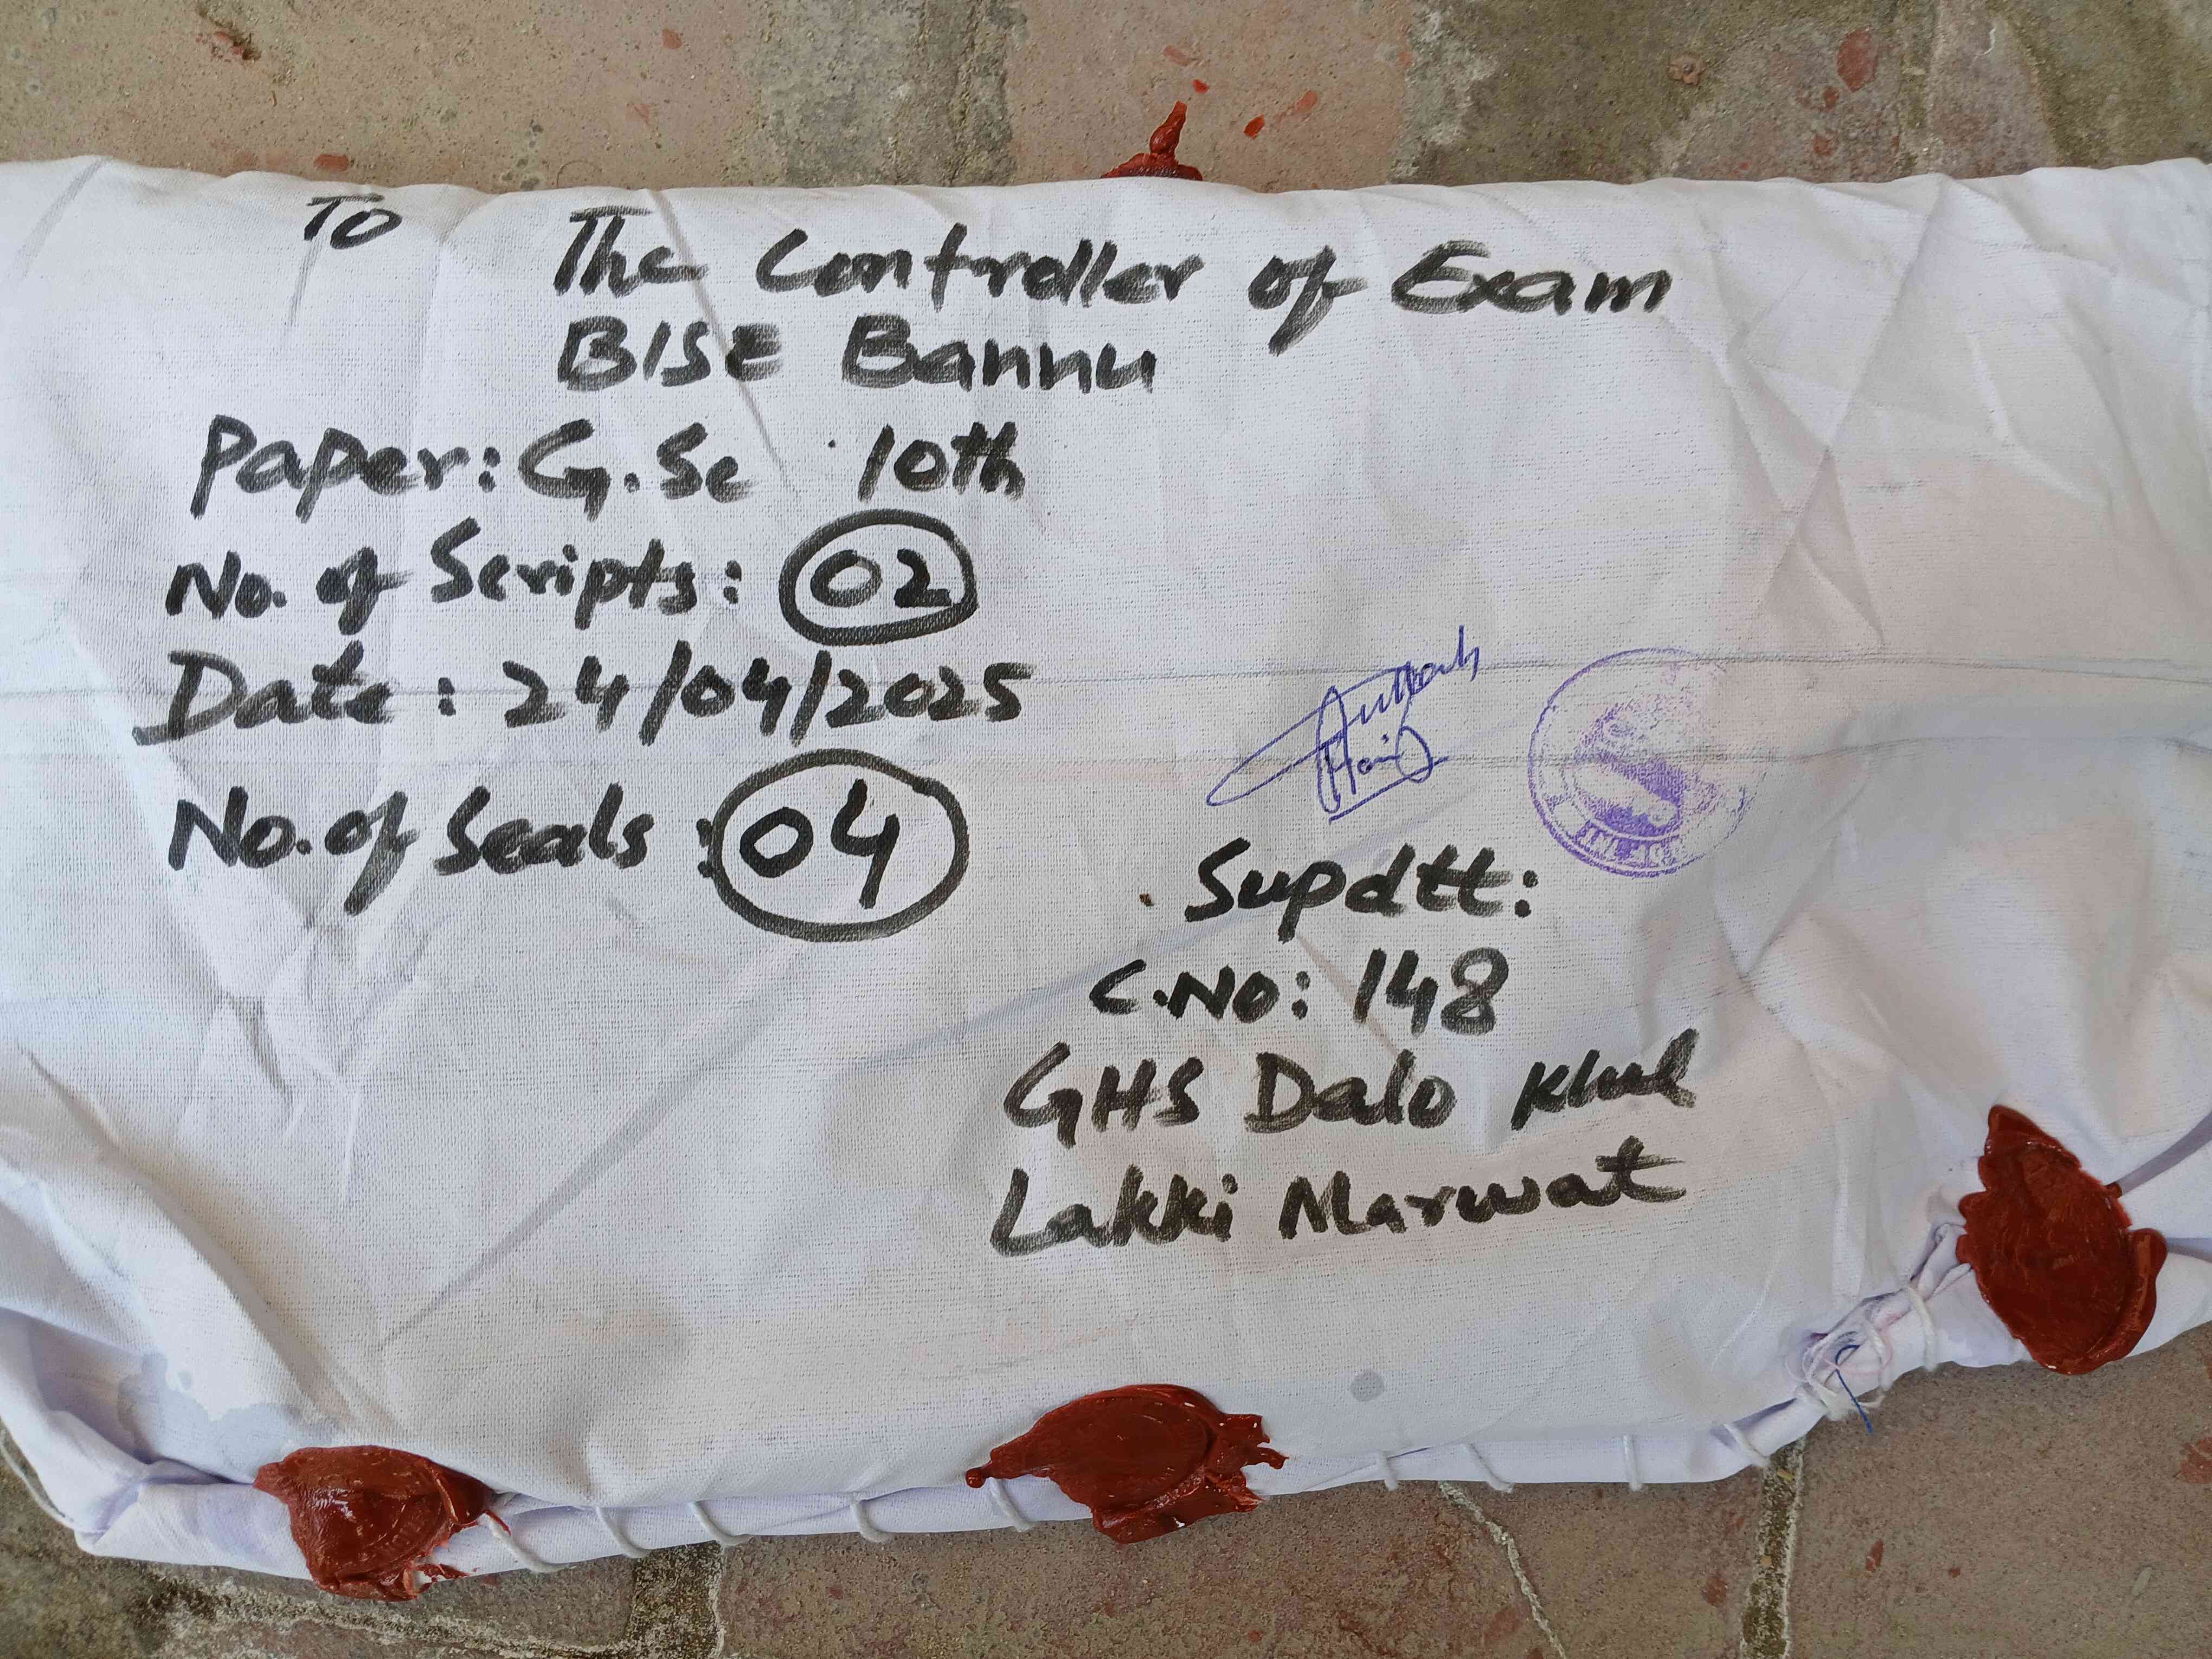 To
The Controller of Exam
BISE Bannu
Paper: G.Sc 10th
No. of Scripts: 02
Date: 24/04/2025
No. of Seals: 04
Supdtt:
C.NO: 148
GHS Dalo Khel
Lakki Marwat